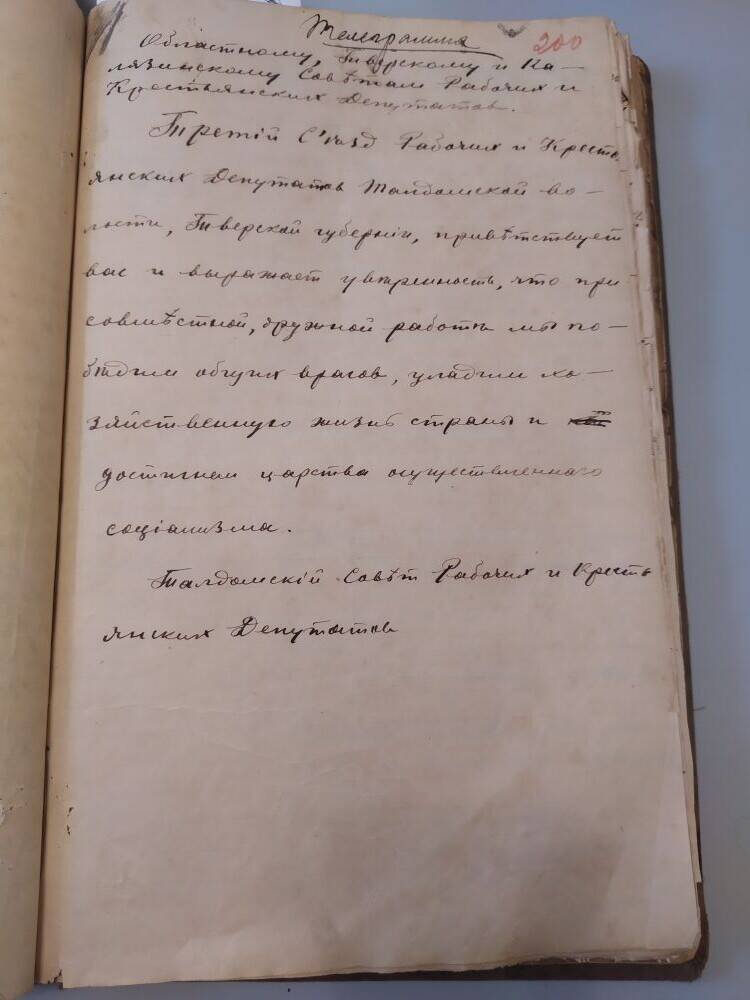 Телеграмма
200
Областному, Тверскому и Ка-
лязинскому Совѣтам Рабочих и
Крестьянских Депутатов.
Третій Съѣзд Рабочих и Кресть
янских Депутатов Талдомской во-
лости, Тверской губерніи, привѣтствует
вас и выражает увѣренность, что при
совмѣстной, дружной работѣ мы по-
бѣдим общих врагов, уладим хо-
зяйственную жизнь страны и
достигнем царства осуществленнаго
соціализма.
Талдомскій Совѣт Рабочих и Кресть
янских Депутатов